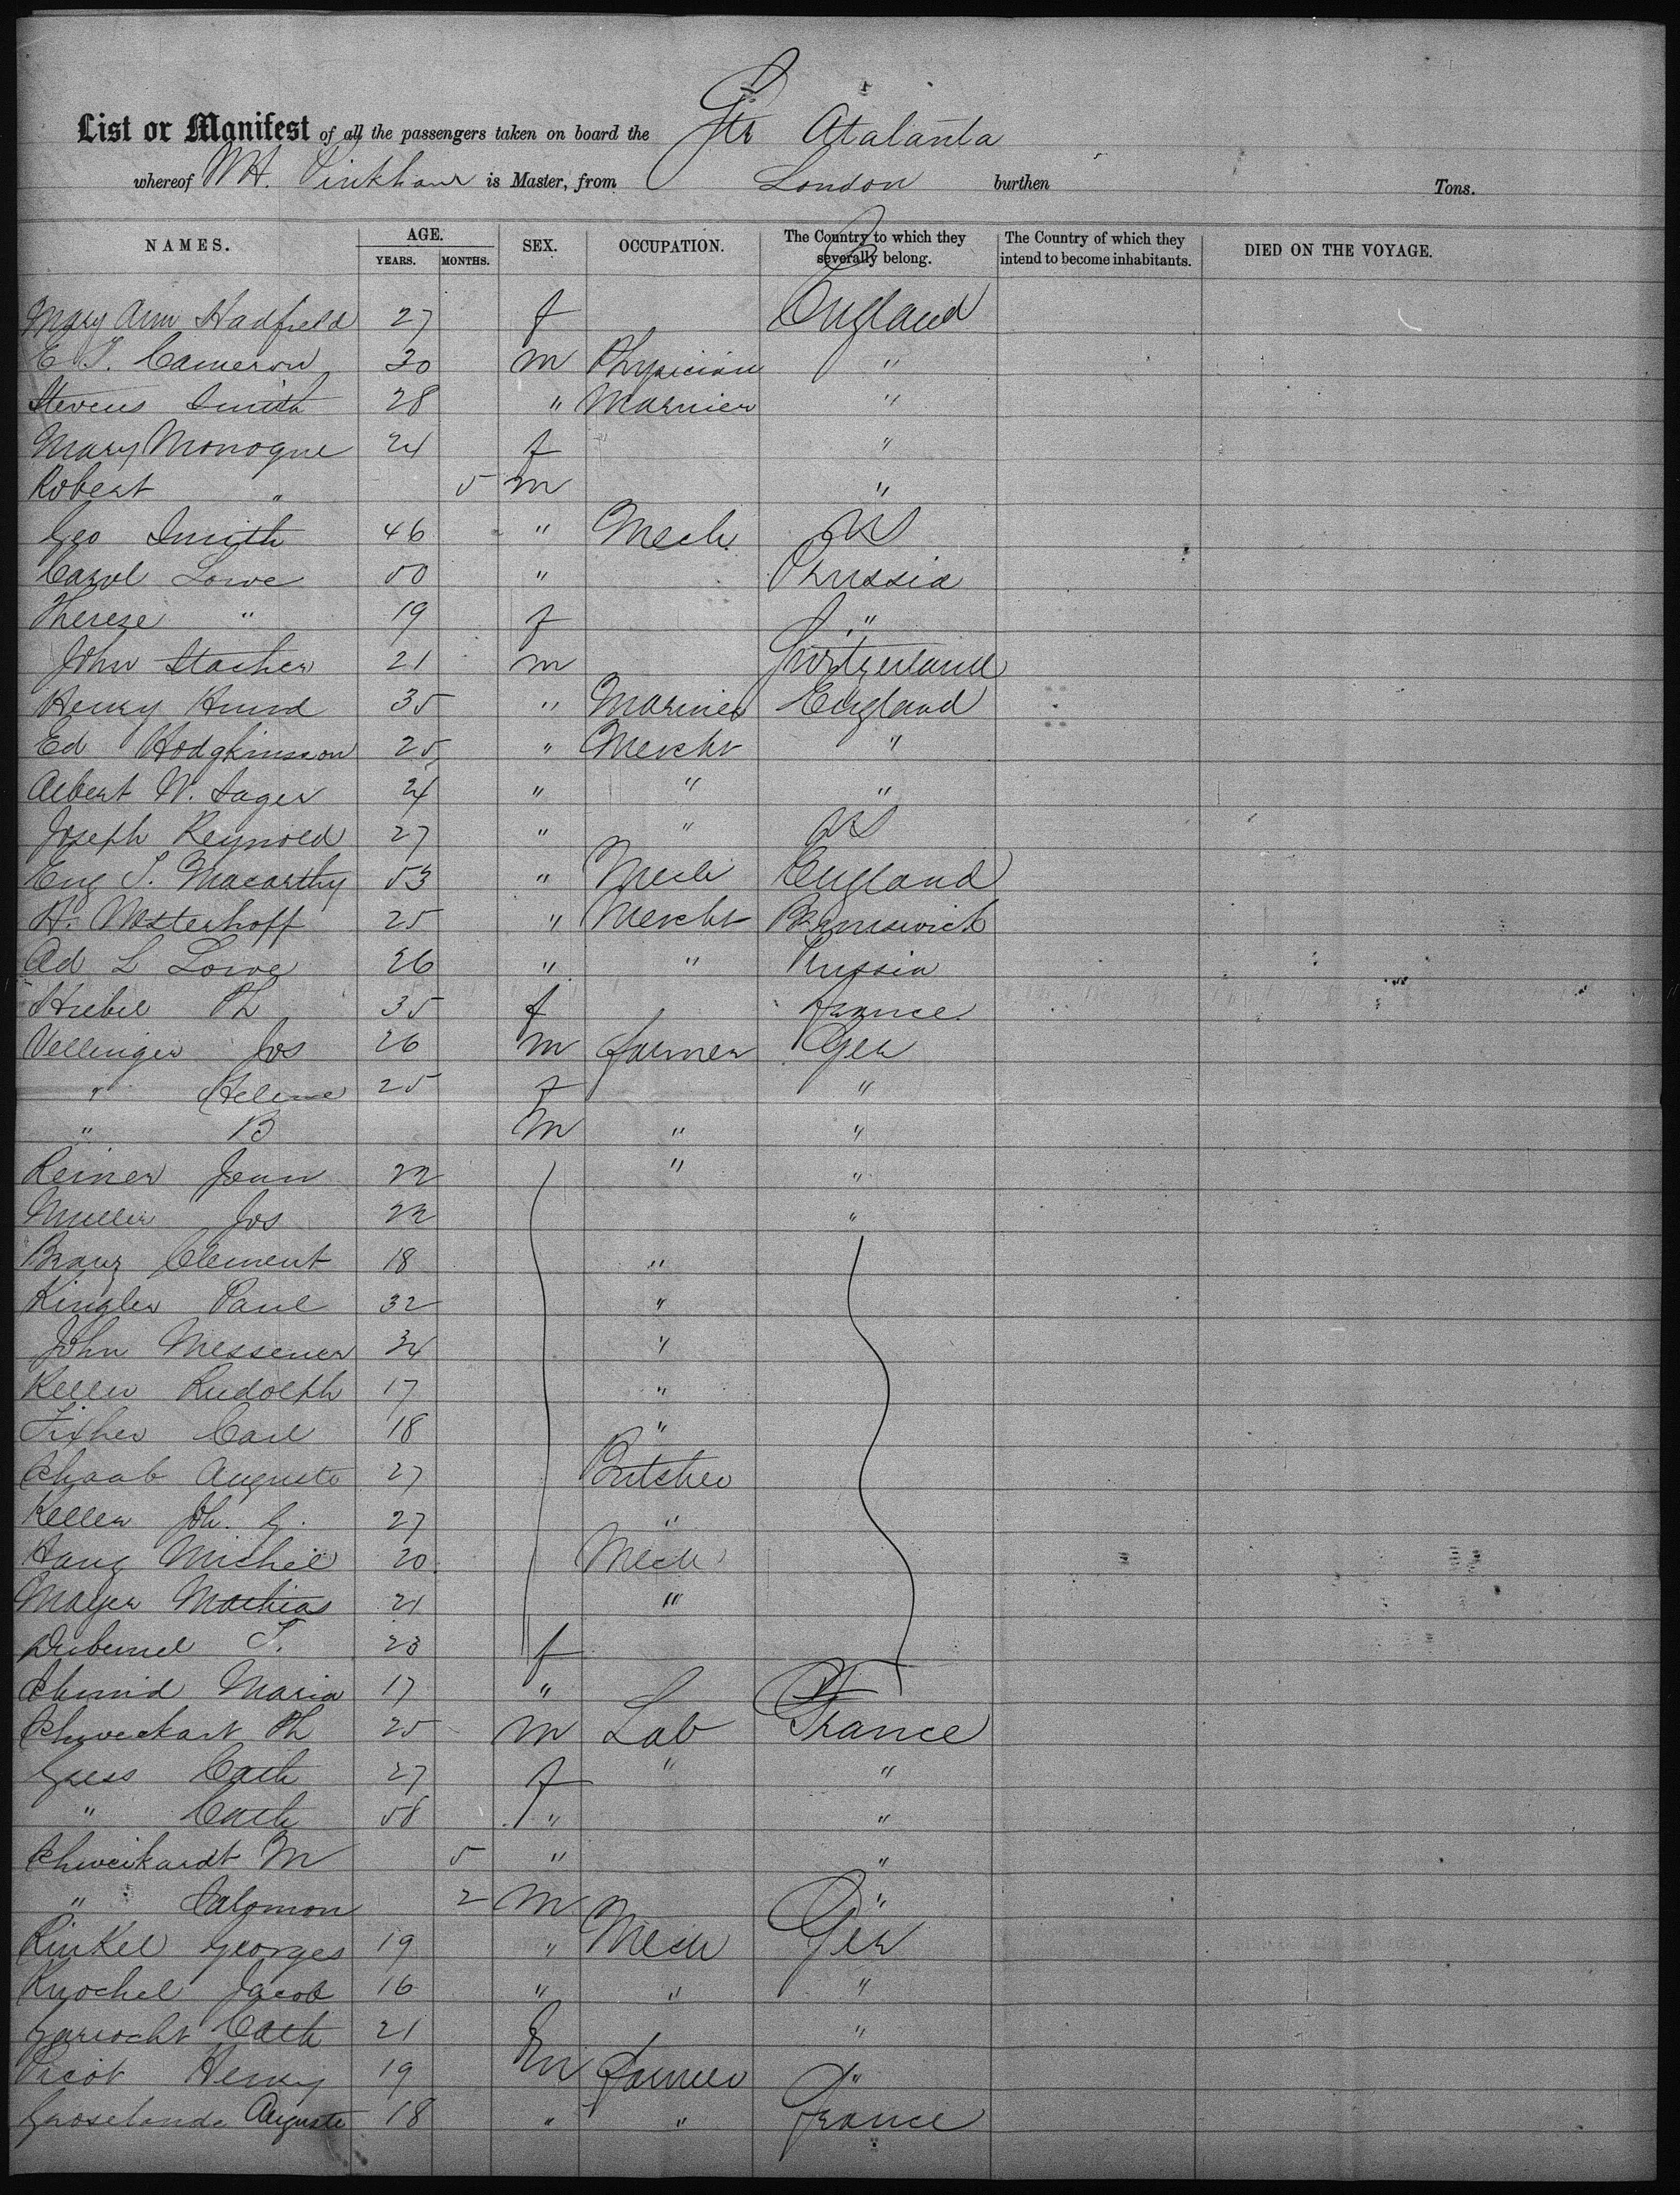 List or Manifest of all the passengers taken on board the Str Atalanta
whereof W H. Pinkham is Master, from London burthen Tons.
NAMES. AGE. YEARS. MONTHS. SEX. OCCUPATION. The Country to which they severally belong. The Country of which they intend to become inhabitants. DIED ON THE VOYAGE.
Mary Ann Hadfield 27 f England
E T. Cameron 30 m Physician "
Stevens Smith 28 " Marnier "
Mary Monogue 24 f "
Robert " 5 m "
Geo Smith 46 " Mech. US
Carol Lowe 50 " Prussia
Therese " 19 f "
John Stacher 21 m Switzerland
Henry Hund 35 " Marnier England
Ed Hodgkinson 25 " Mercht "
Albert W. Sager 24 " " "
Joseph Reynold 27 " " US
Eug S. Macarthy 53 " Mech England
H. Westerhoff 25 " Mercht Brunswick
Ad L Lowe 26 " " Prussia
Hubel Ph 35 f France
Vellinger Jos 26 m farmer Ger
" Helene 25 f "
" B m " "
Reiner Jean 22 " "
Muller Jos 22 "
Branz Clement 18 "
Kingler Paul 32 "
John Messener 34 "
Keller Rudolph 17 "
Fixher Carl 18 "
Schaab Auguste 27 Butcher
Keller Joh. G. 27 "
Haug Michel 20 Mech
Mayer Mathias 21 "
Dubernel T. 23 f
Schmid Maria 17 "
Schweckart Ph 25 m Lab France
Gress Cath 27 f " "
" Cath 58 " "
Schweikardt M 5 " "
" Salomon 2 m "
Rinkel Georges 19 " Mech Ger
Knochel Jacob 16 " " "
Garrocht Cath 21 f "
Picot Henry 19 m farmer "
Groselande Auguste 18 " " France